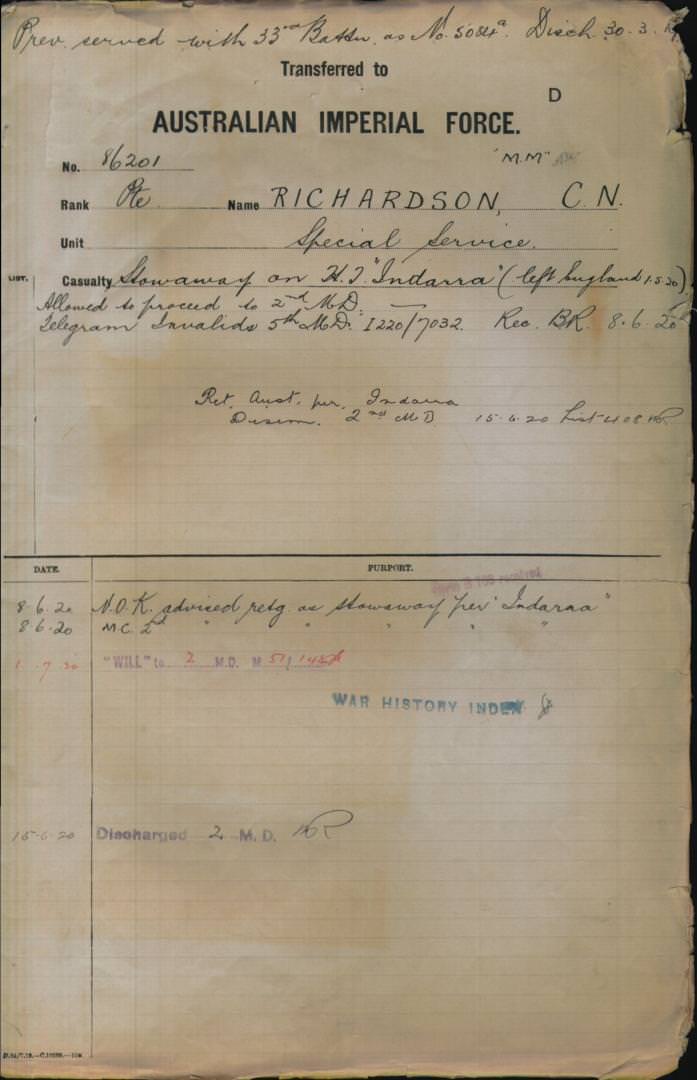 Prev. served with 33rd Battn. as No. 5084a. Disch. 30.3.
Transferred to
D
AUSTRALIAN IMPERIAL FORCE.
No. 86201 "M.M"
Rank Pte. Name RICHARDSON, C.N.
Unit Special Service.
LIST. Casualty Stowaway on H.T. "Indarra" (left England 1.5.20)
Allowed to proceed to 2nd M.D.
Telegram Invalids 5th M.D. I220/7032. Rec. BR. 8.6.20
Ret. Aust. per. Indarra
2nd M.D. 15.6.20 List 408
DATE. PURPORT.
8.6.20 N.O.K. advised retg. as stowaway per "Indarra"
8.6.20 M.C. 2d " " " " "
1.7.20 "WILL" to 2 M.D. M 51/
WAR HISTORY INDEX
15.6.20 Discharged 2 M.D.